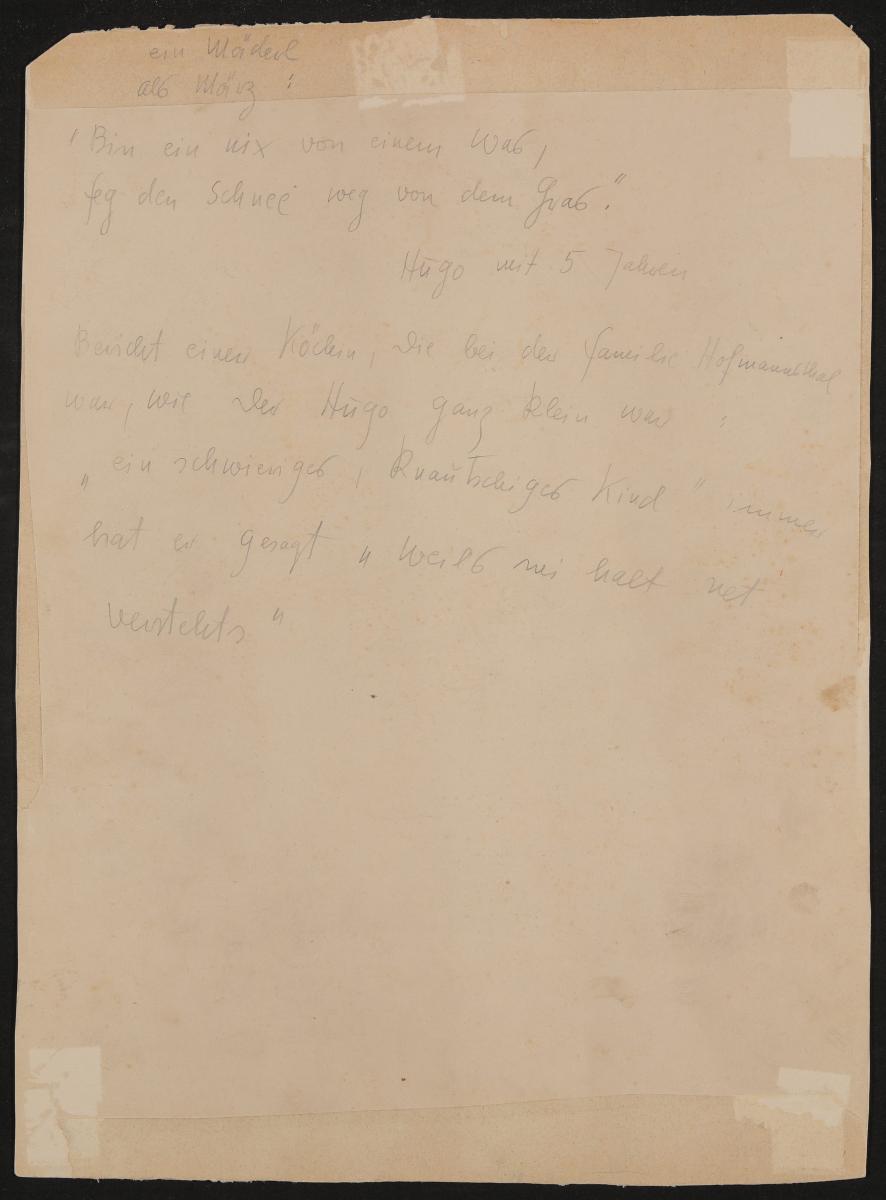 ein Mäderl
als März :
"Bin ein nix von einem Was,
feg den Schnee weg von dem Gras."
Hugo mit 5 Jahren
Bericht einer Köchin, die bei der Familie Hofmannsthal
war, wie der Hugo ganz klein war :
„ein schwieriges, knautschiges Kind" immer
hat er gesagt „Weils mi halt net
verstehts"